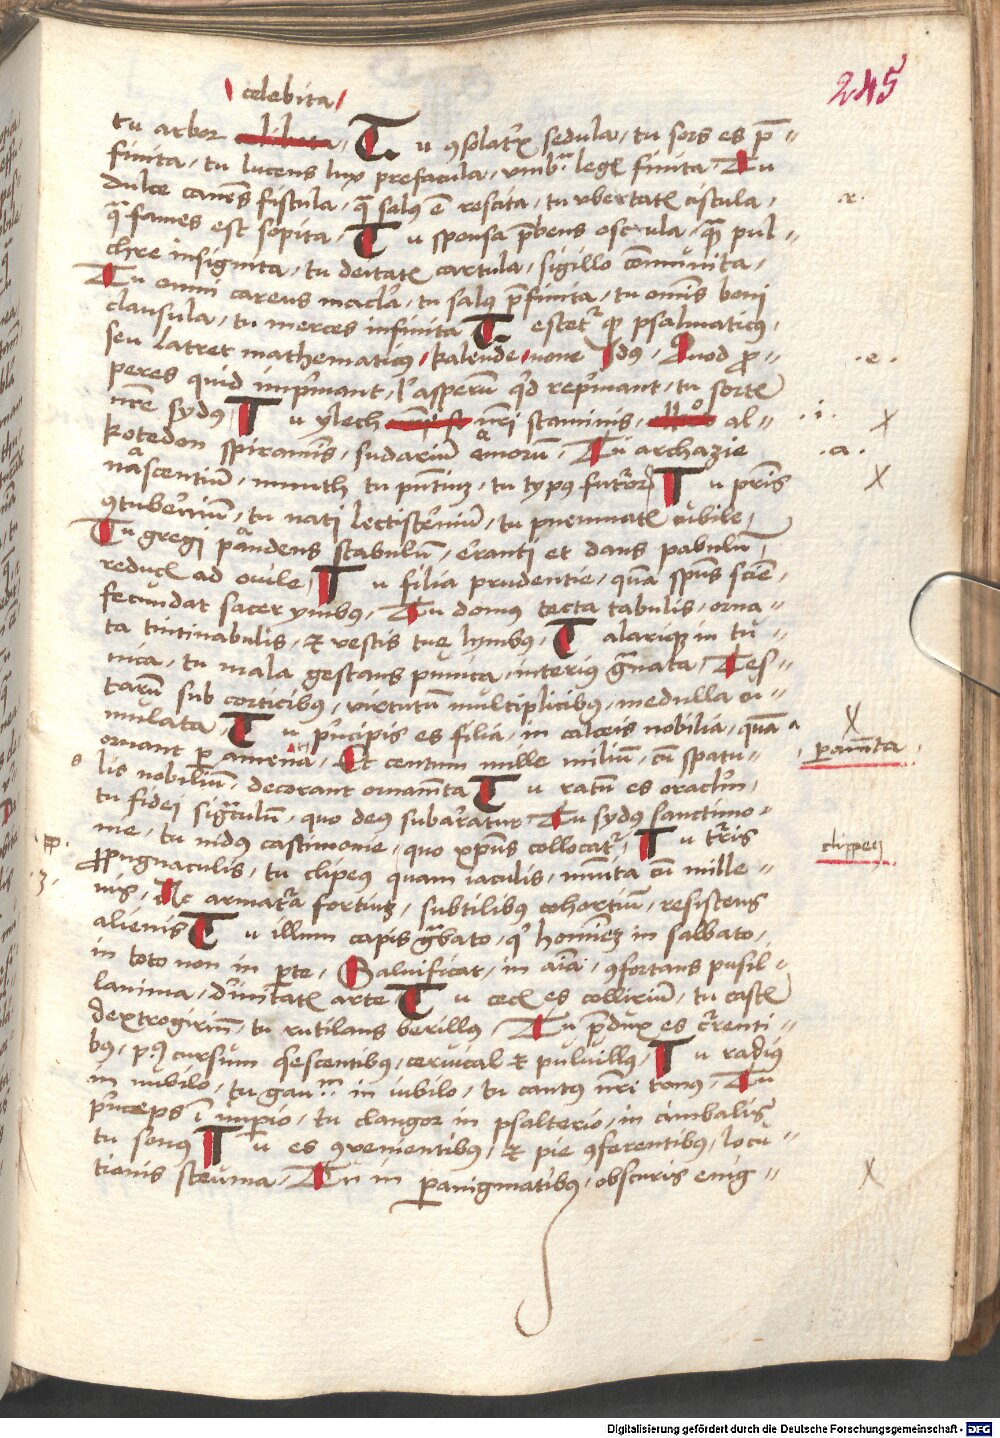 245
celebita
tu arbor Tu ꝯsolatrix sedula, tu sors es p̄-
finita, tu lucens lux prefacula, legē finita Tu
dulce canēs fistula, qua salꝰ ē rescita, tu vbertatꝭ cistula,
.r.
qua fames est sopita, Tu sponsa p̄bens oscula, quā pul-
chre insignita, tu deitatꝭ cartula, sigillo cōmunita,
Tu omni carens macla, tu salꝰ p̄finita, tu omīs boni
clausula, tu merces infinita Te psalmaticꝰ,
seu latret mathematicꝰ, kalende, none Ydus, Quod pro-
.e.
peres quid imprimant, l' asperū qd reprimant, tu sortꝭ
nr̄e sydus, Tu ylech nr̄i staminis, al-
.i.
kotedon spiraminis, sudariū amorū, Tu archazie
.a.
nascentiū, mmuth tu pn̄tium, tu typus futurorū Tu pr̄is
ꝯtuberniū, tu nati lectisterniū, tu pneumatꝭ cubile,
Tu gregi pandens stabulū, erranti et dans pabulū,
reducꝭ ad ovile, Tu filia prudentie, quā sp̄us scie-
fecundat sacer ymbus, Tu domus tecta tabulis, orna-
ta tintinabulis, & vestis tuę lymbus, Talarique in tu-
nica, tu mala gestans punica, interius granata, Tes-
tarū sub corticibus, virtutū multiplicibus, medulla cu-
mulata, Tu principis es filia, in calceis nobilia, quā
ornant per amena, Et centum mille milium, cū spatu-
param̄ta
lis nobiliū, decorant ornam̄ta Tu ratū es oraclm,
tu fidei signaculū, quo deus subarratur Tu sydus sanctimo-
nie, tu nidus castimonie, quo xp̄us collocatur, Tu turris
clipeꝫ
propugnaculis, tu clipeꝰ quam iaculis, munita cū mille-
nis, Ac armatura fortium, subtilibus cohortiū, resistens
alienis Tu illum capis grabato, qui hominem in sabbato,
in toto non in parte, Salvificat, in aīa, ꝯfortans pusil-
lanima, divinitatꝭ arte Tu cecꝭ es colliriū, tu castꝭ
dextrogiriū, tu rutilans berillus, Tu p̄dux es currenti-
bus, cursum quescentibus, cervical & pulvillus, Tu radius
in nubilo, tu in iubilo, tu cantus nr̄i tonus, Tu
princeps ī imperio, tu clangor in psalterio, in cimbalis
tu sonus Tu es ꝯvenientibus, & pie ꝯferentibus, locu-
tionis sceuma, Tu in paranigmatibus, obscuris enig-
Digitalisierung gefördert durch die Deutsche Forschungsgemeinschaft - DFG